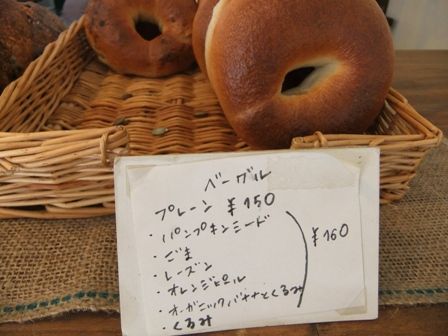 ベーグル
プレーン ¥150
・パンプキンシード
・ごま
・レーズン
・オレンジピール
・オーガニックバナナとくるみ
・くるみ
¥160